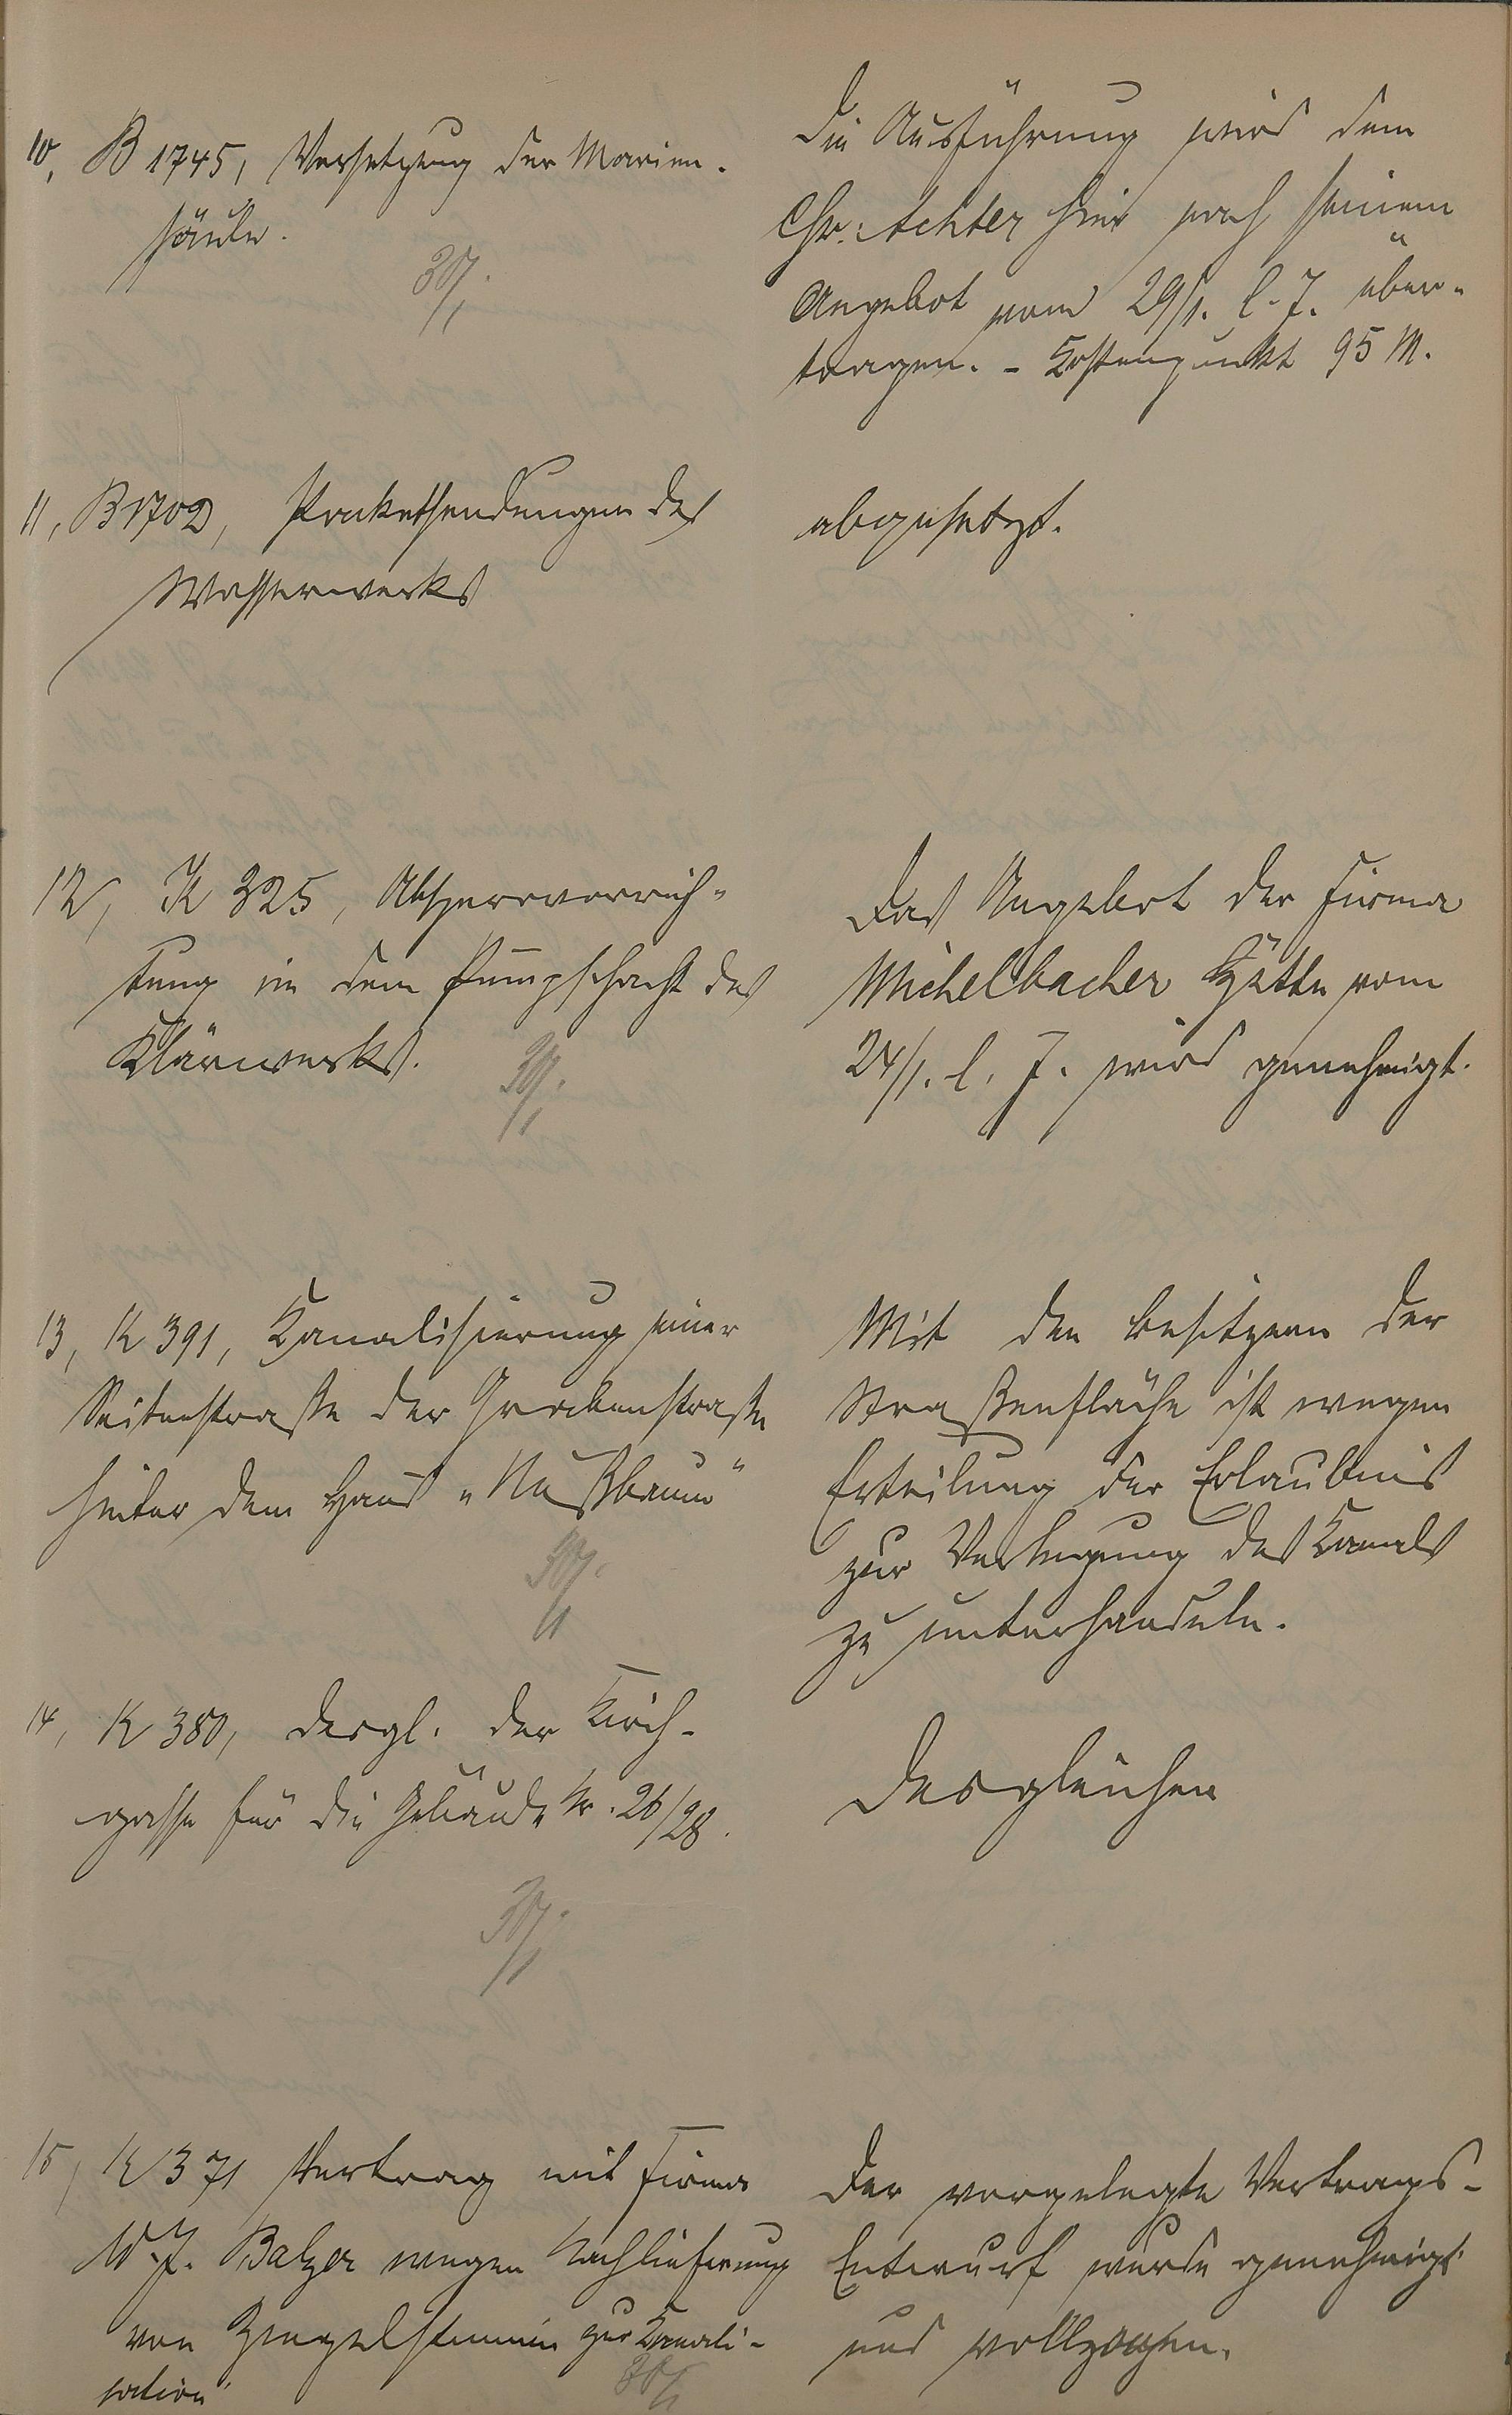 10, B 1745, Versetzung der Marien-
säule.
30/1.
Die Ausführung wird dem
Chr. Achter hier nach seinem
Angebot vom 29/1. l. J. über-
tragen. - Kostenpunkt 95 M.
11, B 1702, Paketsendungen des
Wasserwerks
abgesetzt.
12, K 325, Absperrvorrich-
tung in dem Pumpschacht des
Klärwerks.
30/1.
Das Angebot der Firma
Michelbacher Hütte vom
24/1. l. J. wird genehmigt.
13, K 391, Kanalisierung einer
Seitenstraße der Grabenstraße
hinter dem Haus "Nußbaum"
30/1.
Mit den Besitzern der
Straßenfläche ist wegen
Erteilung der Erlaubnis
zur Verlegung des Kanals
zu unterhandeln.
14, K 380, desgl. der Kirch-
gasse für die Gebäude Nr. 26/28.
30/1.
Desgleichen
15, K 371 Vertrag mit Firma
W. J. Balzer wegen Nachlieferung
von zur Kanali-
sation
30/1
Der vorgelegte Vertrags-
Entwurf wurde genehmigt
und vollzogen.